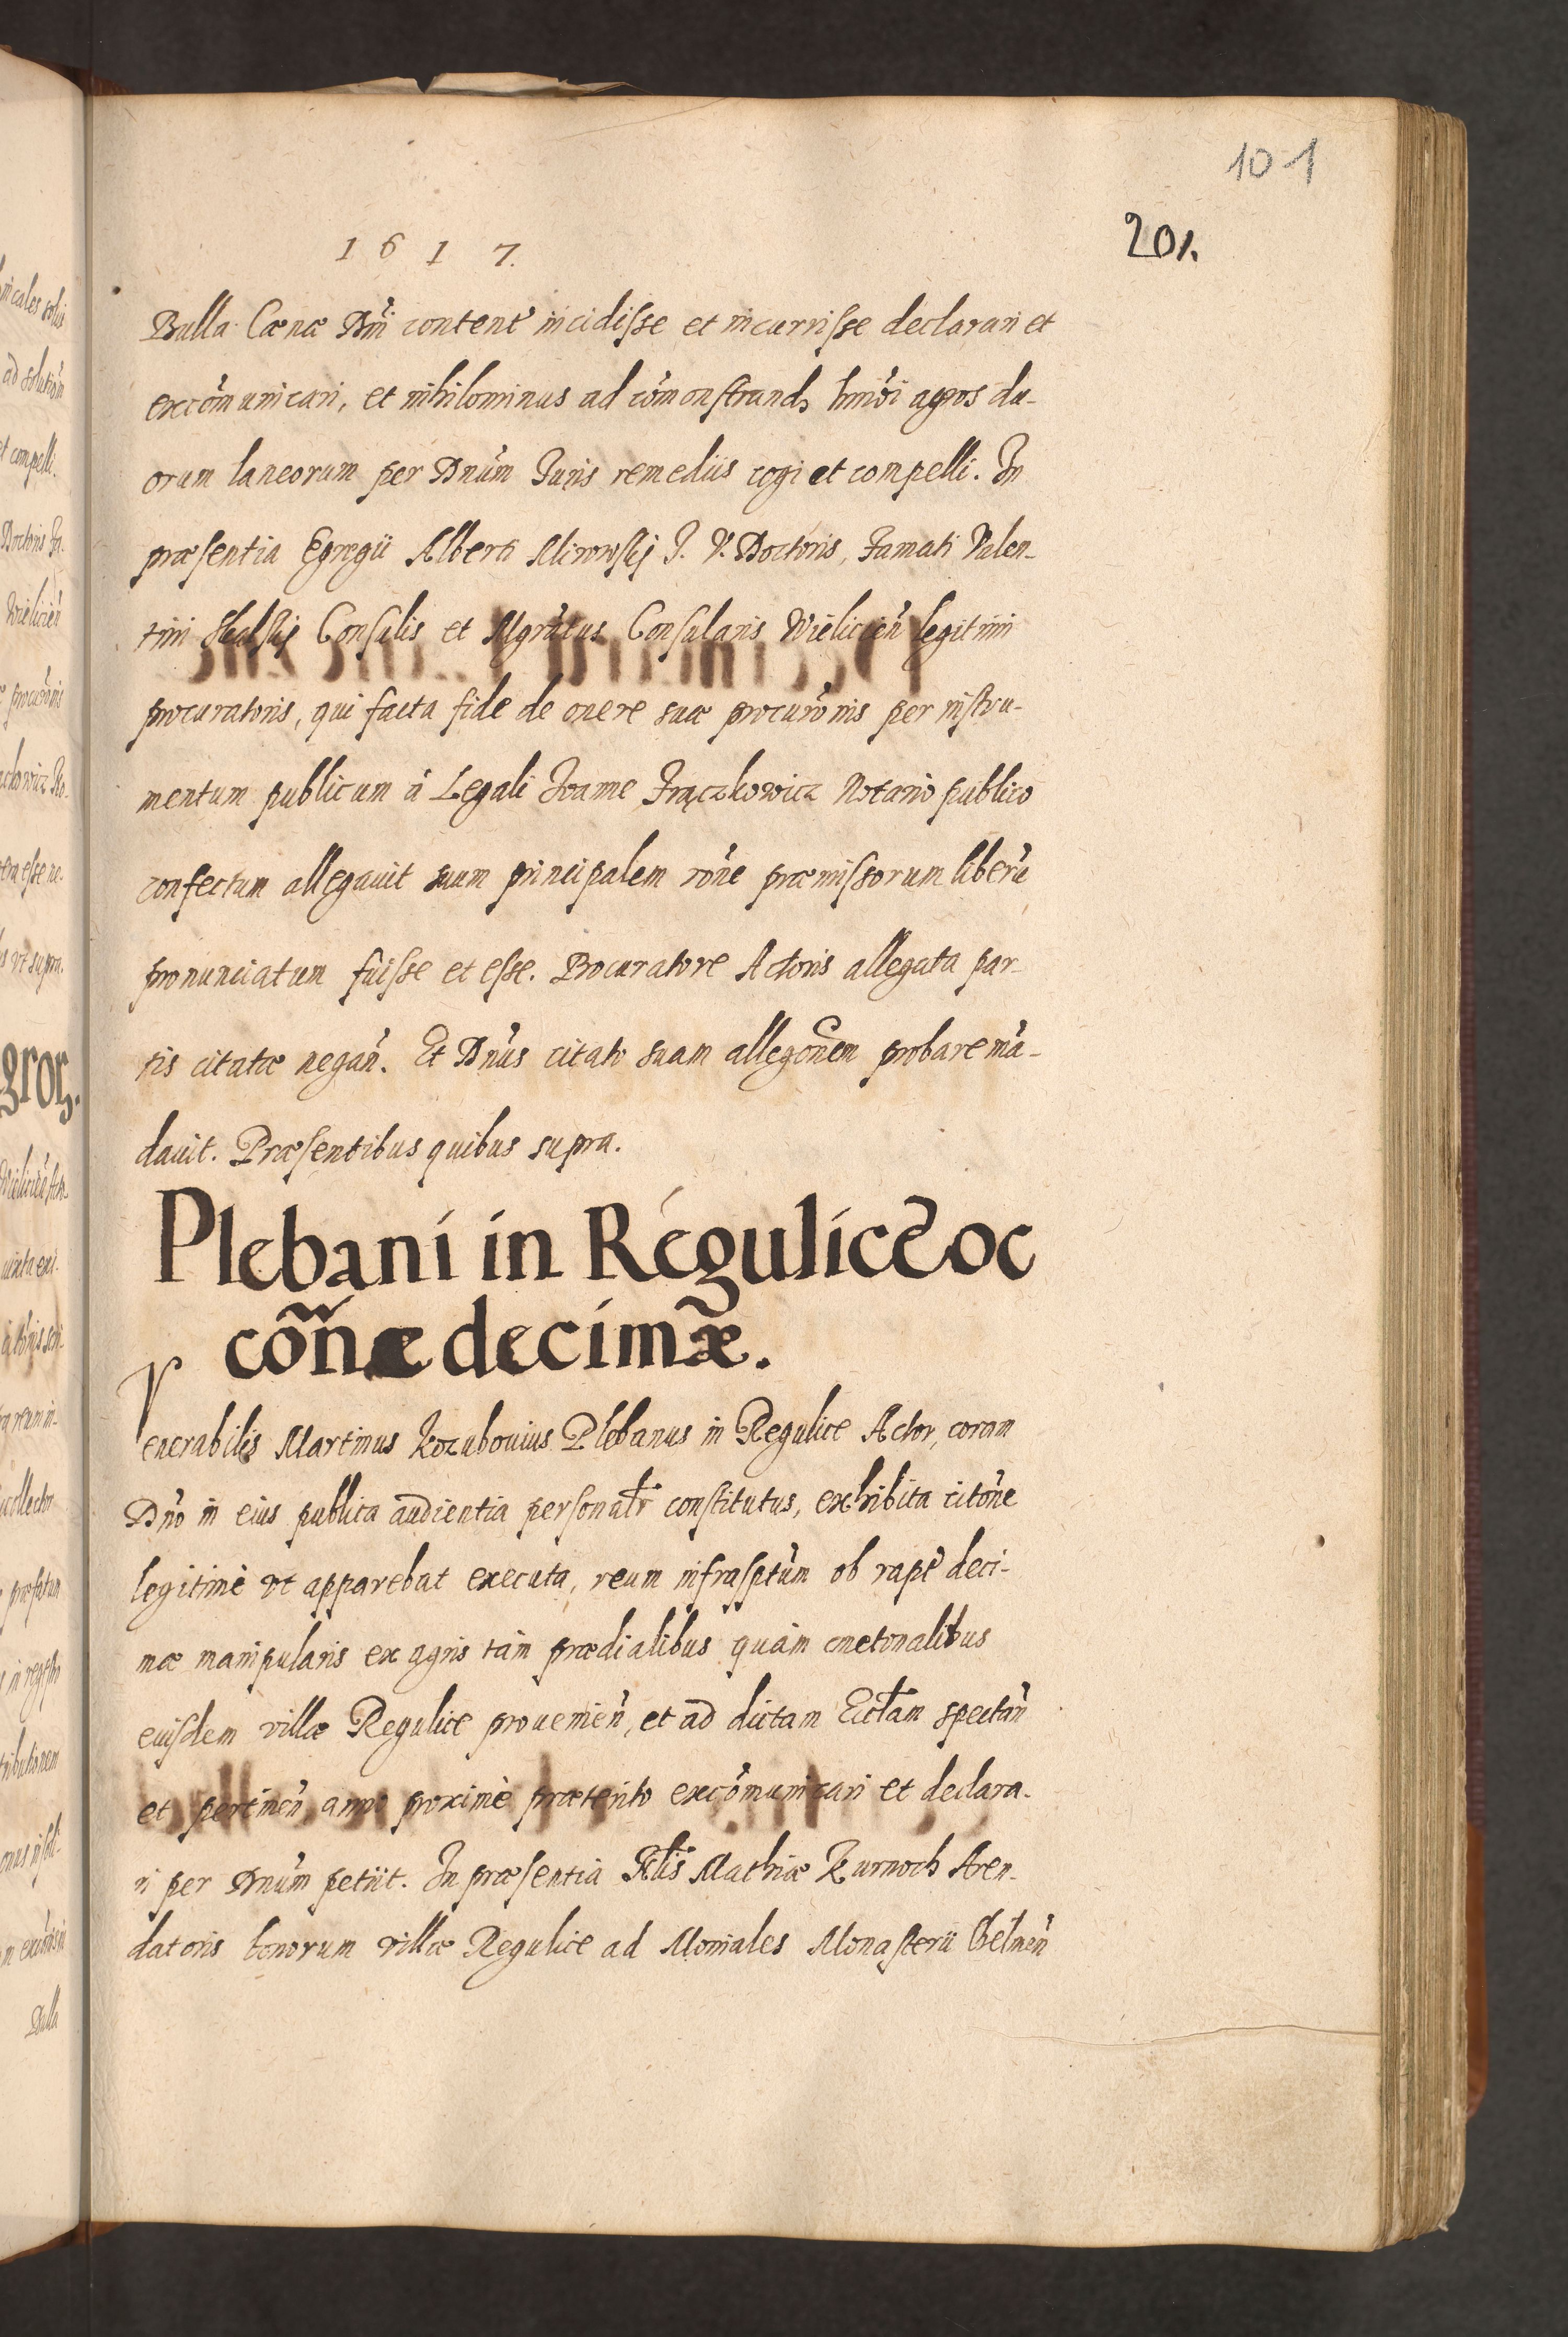 101
201.
1617.
Bulla Cænæ Dñi content̃ incidisse et incurrisse declarari et
excõmunicari, et nihilominus ad cõmonstrand, hmõi agros du-
orum laneorum per Dnũm Juris remediis cogi et compelli. In
præsentia Egregii Alberti Mirowskj J. V. Doctoris, Famati Valen-
tini Skalskj Consulis et Mgrãtus Consularis Wielicień legitimi
procuratoris, qui facta fide de onere suæ procurõnis per instru-
mentum publicum à Legali Joanne Frączkowicz Notario publico
confectum allegauit suum principalem rõne præmissorum liberũ
pronunciatum fuisse et esse. Procuratore Actoris allegata par-
tis citatæ negañ. Et Dñus citato suam allegõnem probare mã-
dauit. Præsentibus quibus supra.
Plebani in Regulice oc
cõnæ decimæ.
Venerabilis Martinus Kozubouius Plebanus in Regulice Actor, coram
Dño in eius publica audientia personalr̃ constitutus, exhibita citõne
legitimè vt apparebat executa, reum infrasptũm ob rapt̃ deci-
mæ manipularis ex agris tam prædialibus quàm cmetonalibus
eiusdem villæ Regulice prouenień, et ad dictam Eccl̃am spectañ
et pertineñ, anno proximè præterito excõmunicari et declara-
ri per Dnũm petiit. In præsentia Mathiæ Kurnoch Aren-
datoris bonorum villæ Regulice ad Moniales Monasterii